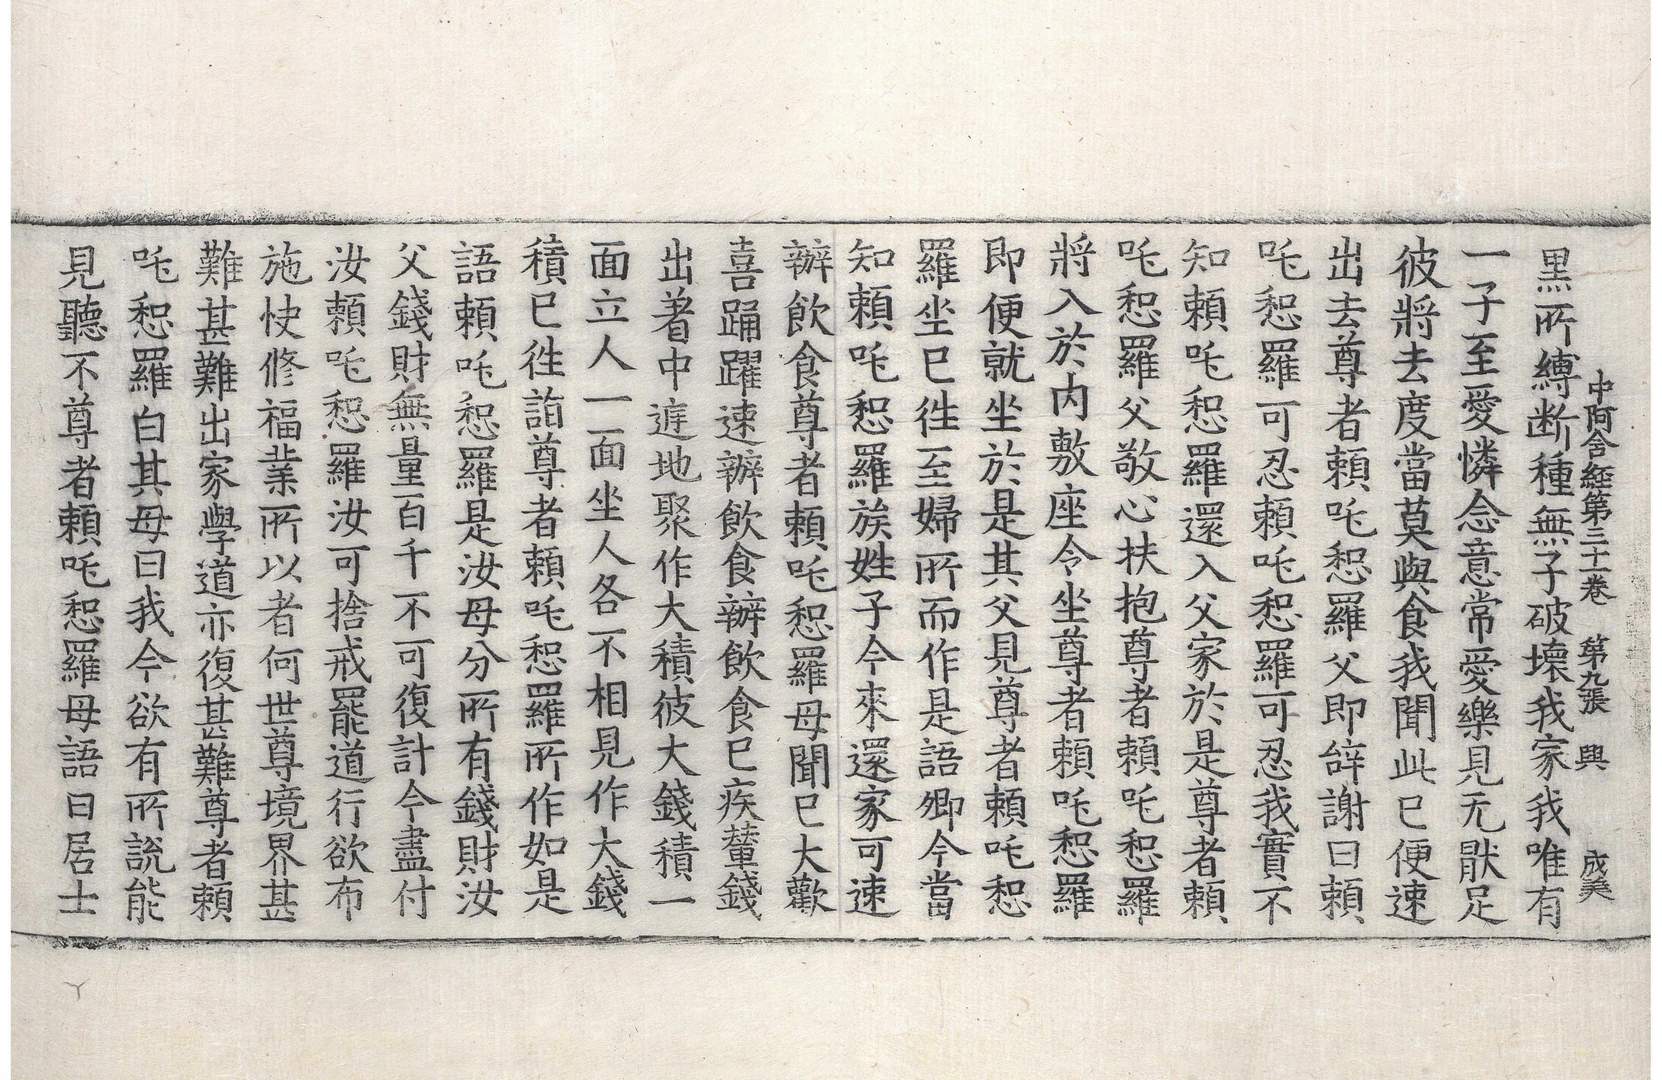 中阿含経第三十一卷 第九張 興 成美
黒所縛断種無子破壊我家我唯有
一子至愛憐念意常愛樂見无猒足
彼將去度當莫與食我聞此已便速
出去尊者頼吒惒羅父即辝謝曰頼
吒惒羅可忍頼吒惒羅可忍我實不
知頼吒惒羅還入父家於是尊者頼
吒惒羅父敬心扶抱尊者頼吒惒羅
將入於内敷座令坐尊者頼吒惒羅
即便就坐於是其父見尊者頼吒惒
羅坐已徃至婦所而作是語卿今當
知頼吒惒羅族姓子今來還家可速
辦飲食尊者頼吒惒羅母聞已大歡
喜踊躍速辦飲食辦飲食已疾輦錢
出著中庭地聚作大積彼大錢積一
面立人一面坐人各不相見作大錢
積已徃詣尊者頼吒惒羅所作如是
語頼吒惒羅是汝母分所有錢財汝
父錢財無量百千不可復計今盡付
汝頼吒惒羅汝可捨戒罷道行欲布
施快修福業所以者何世尊境界甚
難甚難出家學道亦復甚難尊者頼
吒惒羅白其母曰我今欲有所說能
見聽不尊者頼吒惒羅母語曰居士